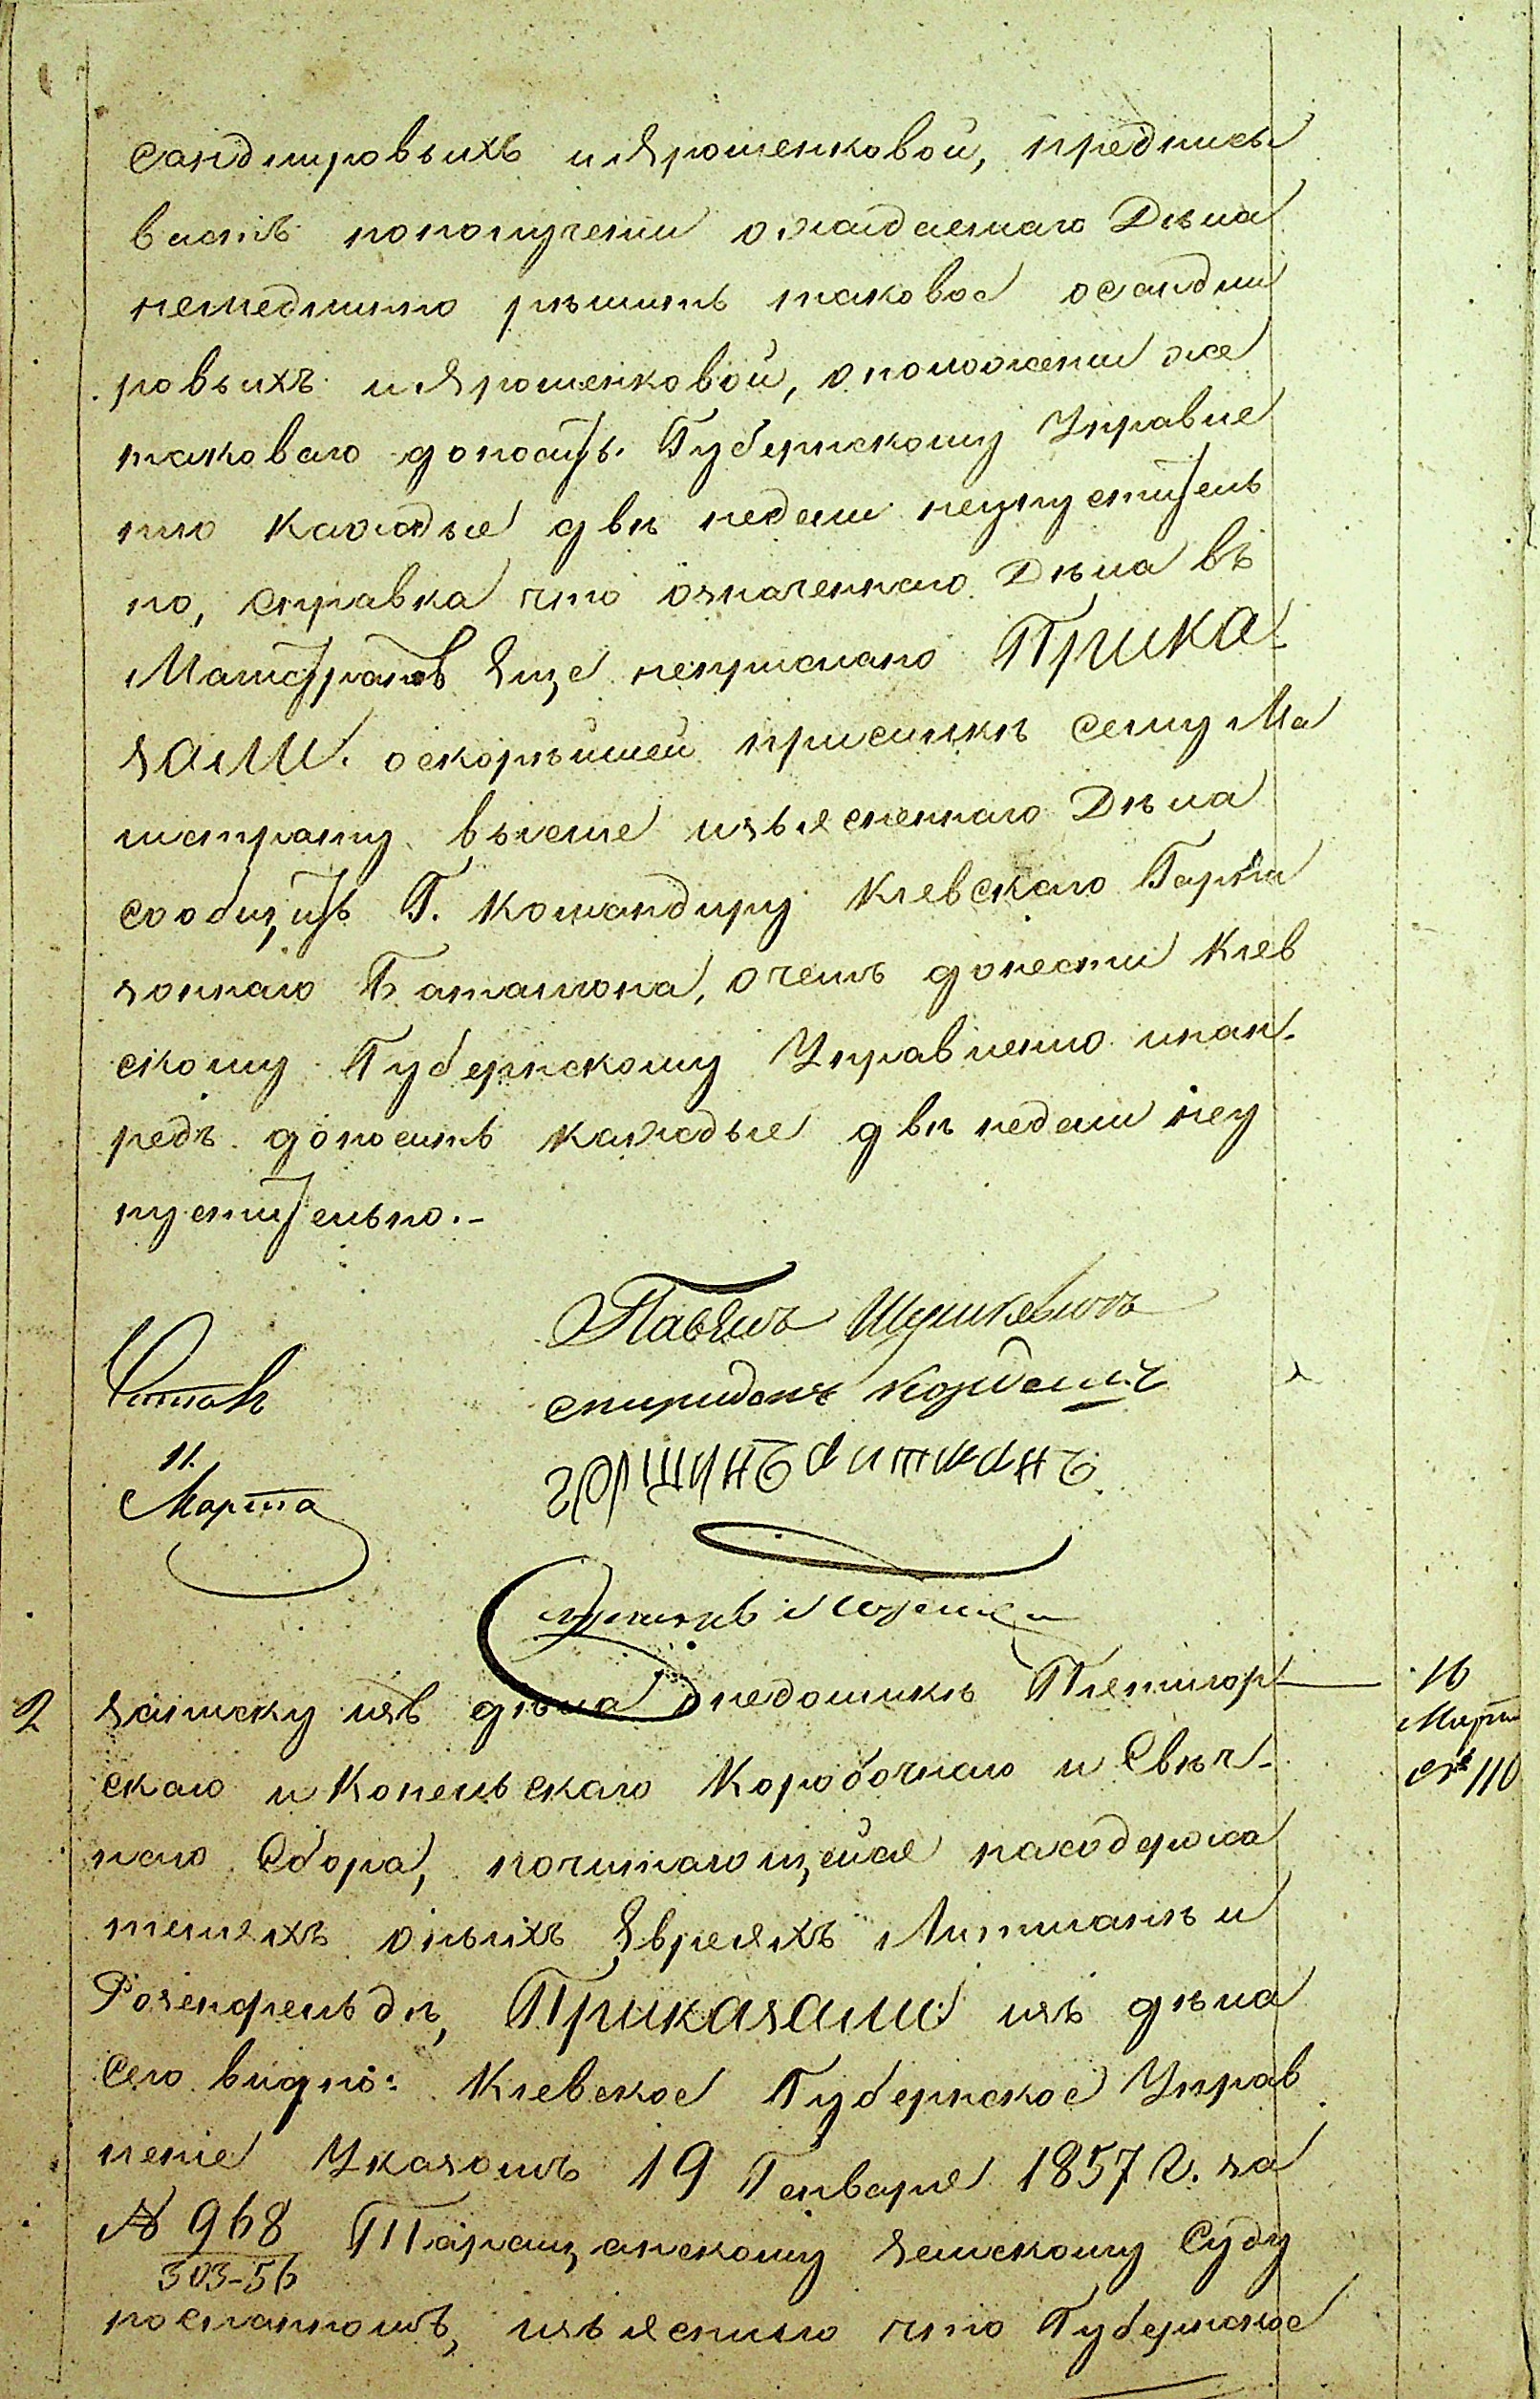 Сандмировыхъ и Ярошенковой, предписы
ваетъ пополученіи ожидаемаго Дѣла
немедлинно рѣшить таковое оСандми
ровыхъ и Ярошенковой, оположеніи же
таковаго доносить Губернскому Управле
нію каждые двѣ недели неупустітель
но, справка что означеннаго Дѣла въ
Магістратѣ Еще неприслано Прика-
зали. оскорѣйшей присилкѣ сему Ма
гистрату выше изъясненнаго Дѣла
сообщить Г. Командиру Кіевскаго Гарни
зоннаго Баталіона, очемъ донести Кіев
скому Губернскому Управленію инап-
редъ доносить каждые двѣ недели неу
пустительно.-
Читалъ
11.
Марта
Павелъ
Спиридонъ
2 Записку изъ дѣла онедоимкѣ Пятигор
скаго и Конельскаго Коробочнаго и Свѣч-
наго Сбора, почитающейся насодержа
теляхъ оныхъ Евреяхъ Литманѣ и
Розенфельдѣ, Приказали: изъ дѣла
сего видно: Кіевское Губернское Управ
леніе Указомъ 19 Генваря 1857 г. за
№ 968
303-56
Таращанскому Земскому Суду
посланномъ, изъяснило что Губернское
16
Март
№ 110